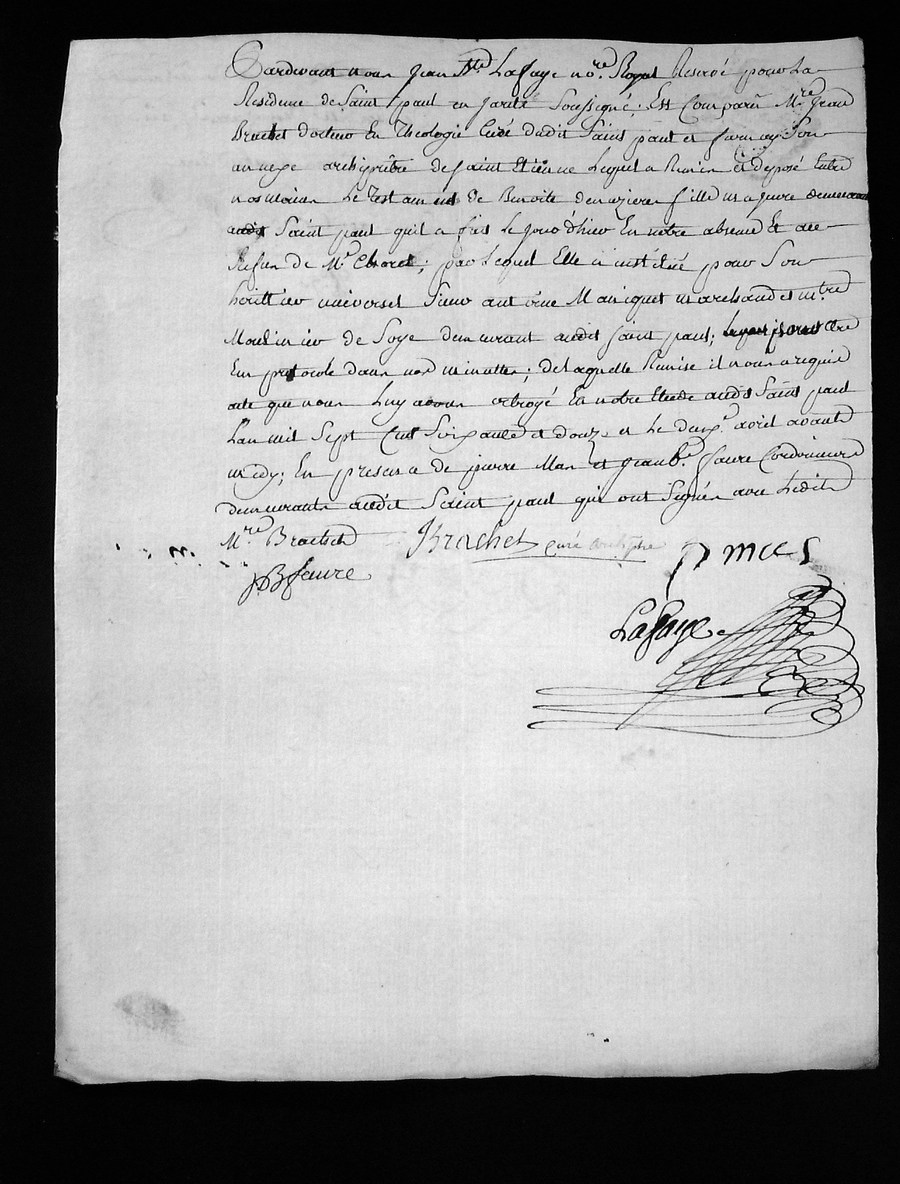 Pardevant nous Jean Bte. Lafaye nore. Royal Reservé pour la
Residence de Saint paul en Jarêt Soussigné; Est Comparû Mre. Jean
Brachet docteur En Theologie Curé dudit Saint paul et farnay Son
annexe archiprêtre de Saint Etienne Lequel a Remis et deposé Entre
nos mains Le Testament de Benoite fille majeure demeurant
audit Saint paul quil a fait Le jour d'hier En notre absence Et au
Refus de Mr. ; par Lequel Elle a institué pour Son
heritier universel Sieur antoine Maniquet marchand et mtre.
Moulinier de Soye demeurant audit Saint paul; être
Em protocole dans nos minuttes; de Laquelle Remise il nous a requis
acte que nous Luy avons octroyé En notre Etude audit Saint paul
L'an mil Sept Cent Soixante et douze et Le deux. avril avant
midy; En presence de pierre Mas et Jean B. faure Cordonniers
demeurants audit Saint paul qui ont Signés avec Ledit
Mre. Brachet
Brachet curé archiptre
P mas
JB faure
Lafaye